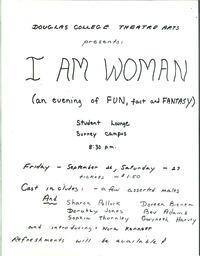 DOUGLAS COLLEGE THEATRE ARTS
presents:
I AM WOMAN
(an evening of FUN, fact and FANTASY)
Student Lounge
Surrey Campus
8:30 p.m.
Friday - September 26, Saturday - 27
tickets - $1.50
Cast includes: - a few assorted males
And Sharon Pollock Doreen Bienen
Dorothy Jones Bev Adams
Sophia Thornley Gwyneth Harvey
and introducing: Nora
Refreshments will be available!